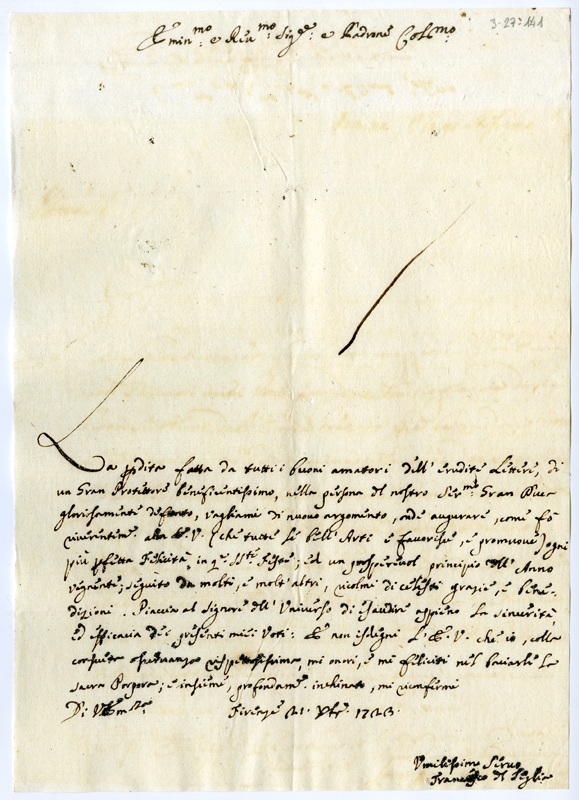 3-27-141
Emin.mo e Rev.mo Sig.re e Padrone Col.mo
La pdita fatta da tutti i buoni amatori dell' erudite Lettere, di
un Gran Protettore beneficentissimo, nella persona del nostro Ser.mo Gran Duca
gloriosamente defonto, vagliami di nuovo argomento, onde augurare, come fò
riverentem.e alla E.V. (che tutte le bell' Arti e favorisce, e promuove) ogni
più pfetta Felicità, in q.e SS.te Feste; ed un prosperevol principio dell' Anno
vegnente; seguito da molti, e molt' altri, ricolmi di celesti grazie, e bene-
dizioni. Piaccia al Signore dell' Universo di esaudire appieno la sincerità,
ed efficacia dei presenti miei Voti: Et non isdegni l' E.V. che io, colla
consueta osservanza rispettosissima, mi onori, e mi feliciti nel baciarle la
Sacra Porpora; e insieme, profondam.e inchinato, mi riconfermi
Di V. Em.za Firenze 21. Xbre 1723.
Umilissimo Servo
Francesco